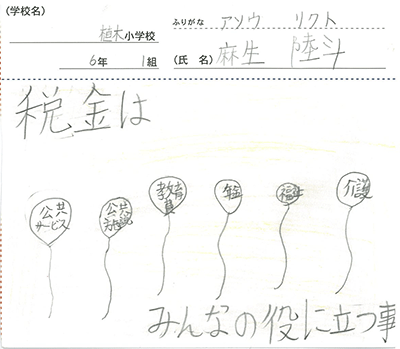 (学校名)
植木小学校
6年 1組
ふりがな アソウ リクト
(氏 名) 麻生 陸斗
税金は
公共サービス
公共施設
教育員
年金
福祉
介護
みんなの役に立つ事